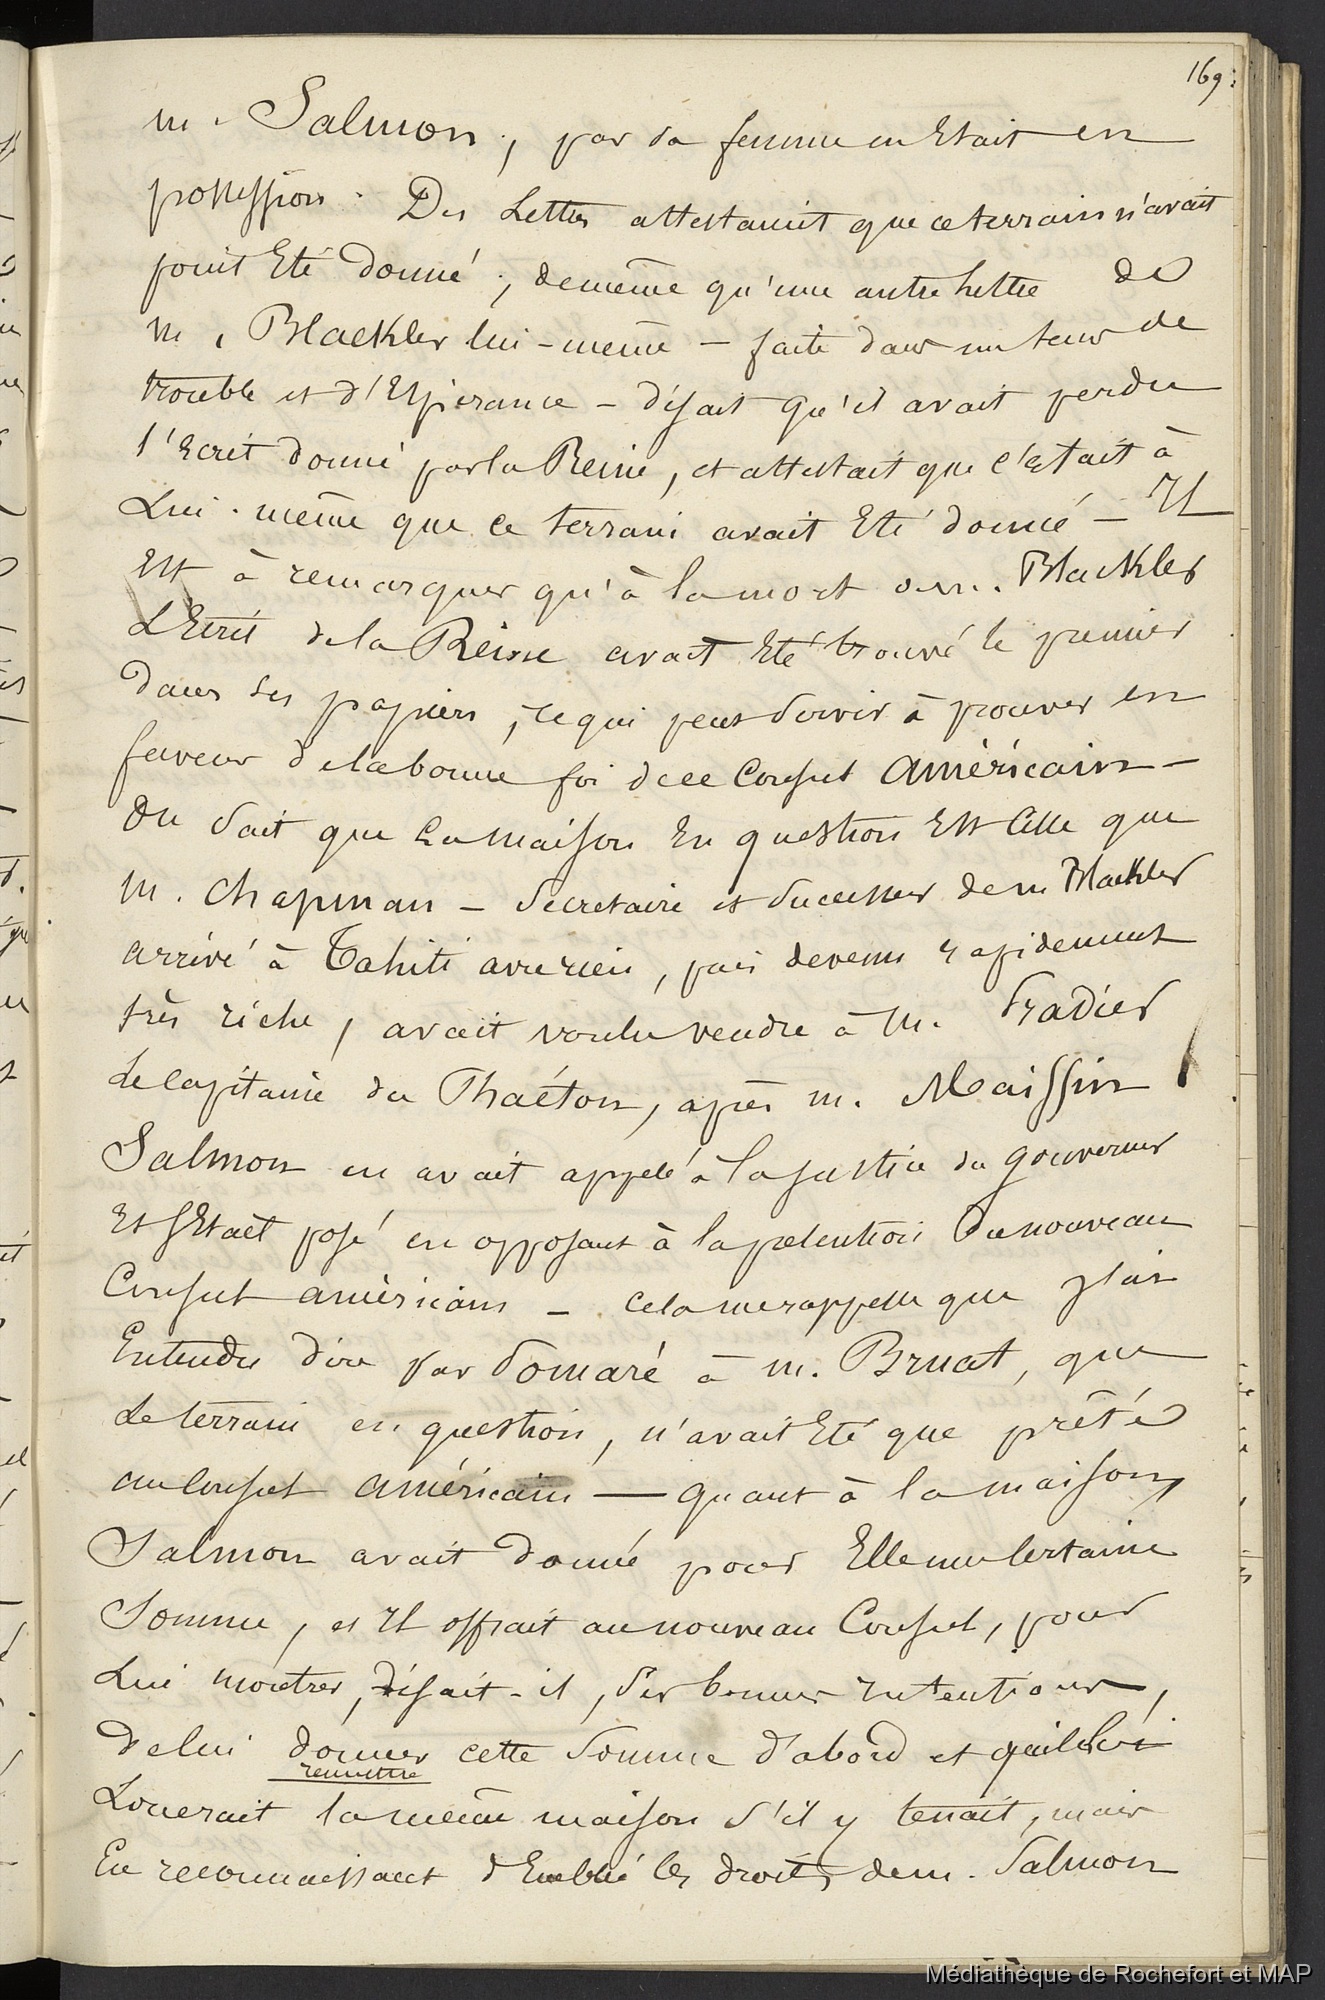 169.
m. Salmon, par sa femme en Etait en
possession. Des Lettres attestaient que ce terrain n'avait
point Eté donné, de même qu'une autre Lettre de
m. Blackler lui-même – faite dans un tems de
trouble et d'Espérance – disait qu'il avait perdu
l'Ecrit donné par la Reine, et attestait que c'était à
Lui-même que ce terrain avait Eté donné – Il
Est à remarquer qu'à la mort de m. Blackler
L'Ecrit de la Reine avait Eté trouvé le premier
dans ses papiers, ce qui peut servir à prouver en
faveur de la bonne foi de ce Consul Américain –
On sait que la maison En question Est Celle que
m. Chapman – Secretaire et successeur de m Blackler
arrivé à Tahiti avec rien, puis devenu rapidement
très riche, avait voulu vendre à m. Pradier
Le Capitaine du Phaéton, après m. Maissin
Salmon en avait appelé à la justice du gouverneur
Et s'Etait posé en opposant à la prétention du nouveau
Consul américain – cela me rappelle que j'ai
Entendu dire par Pomaré à m. Bruat, que
Le terrain en question, n'avait Eté que prêté
au Consul américain — quant à la maison,
Salmon avait donné pour Elle une Certaine
Somme, et Il offrait au nouveau Consul, pour
Lui montrer, disait-il, ses bonnes Intentions,
de lui donner cette somme d'abord et qu'il lui
remettre
Louerait la même maison s'il y tenait, mais
En reconnaissant d'Emblée les droits de m. Salmon
Médiathèque de Rochefort et MAP